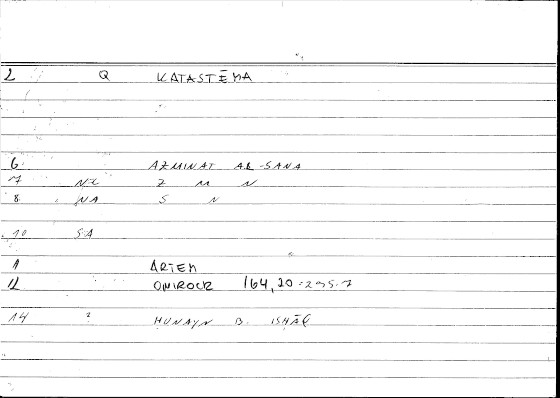 2 Q KATASTĒMA
6 AZMINAT AL-SANA
7 NE Z M N
8 NA S N
10 SA
11 ARTEM
12 ONIROCR 164,20 = 235.7
14 2 HUNAYN B. ISHĀQ